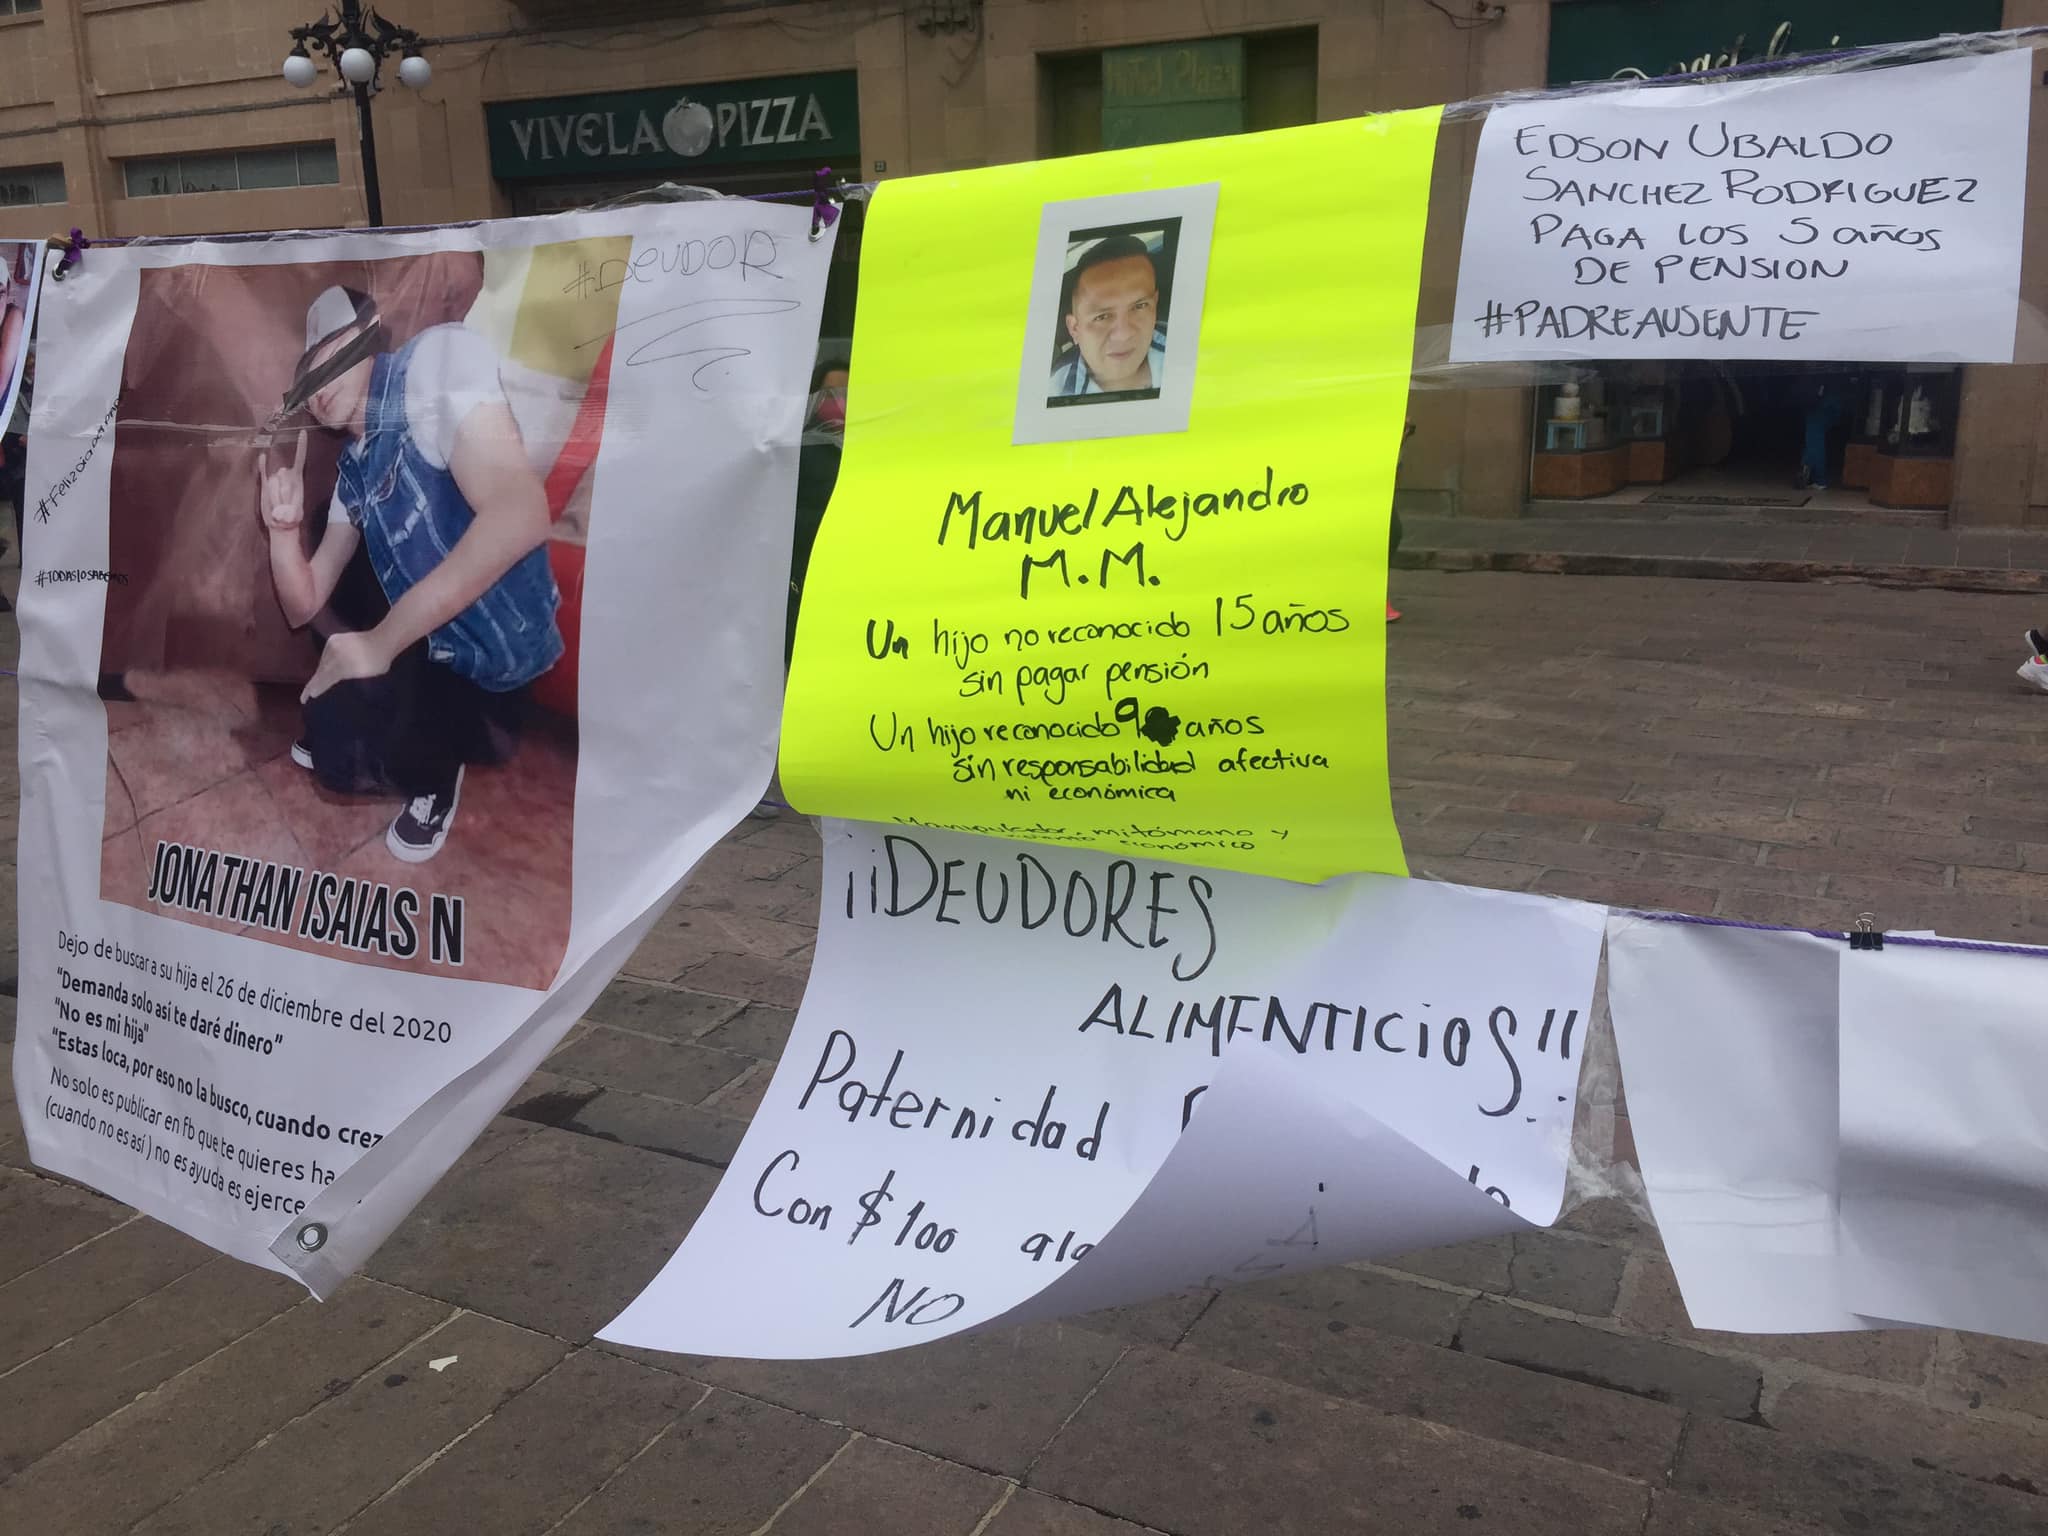 VIVELA PIZZA
#DEUDOR
#TODASLOSABEMOS
JONATHAN ISAIAS N
Dejo de buscar a su hija el 26 de diciembre del 2020
"Demanda solo así te daré dinero"
"No es mi hija"
"Estas loca, por eso no la busco, cuando crez
No solo es publicar en fb que te quieres ha
(cuando no es así) no es ayuda es ejerce
Manuel Alejandro
M.M.
Un hijo no reconocido 15 años
sin pagar pensión
Un hijo reconocido 9 años
sin responsabilidad afectiva
ni económica
Manipulador, mitómano y
económico
¡¡DEUDORES
ALIMENTICIOS!!
Paternidad
Con $100 ala
NO
EDSON UBALDO
SANCHEZ RODRIGUEZ
PAGA LOS 5 años
DE PENSION
#PADREAUSENTE